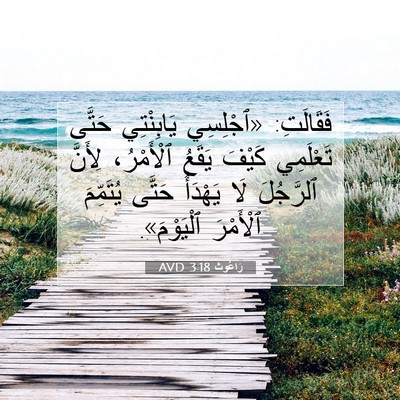 فَقَالَتِ: «ٱجْلِسِي يَابِنْتِي حَتَّى
تَعْلَمِي كَيْفَ يَقَعُ ٱلْأَمْرُ، لِأَنَّ
ٱلرَّجُلَ لَا يَهْدَأُ حَتَّى يُتَمِّمَ
ٱلْأَمْرَ ٱلْيَوْمَ».
رَاعُوثَ 3:18 AVD